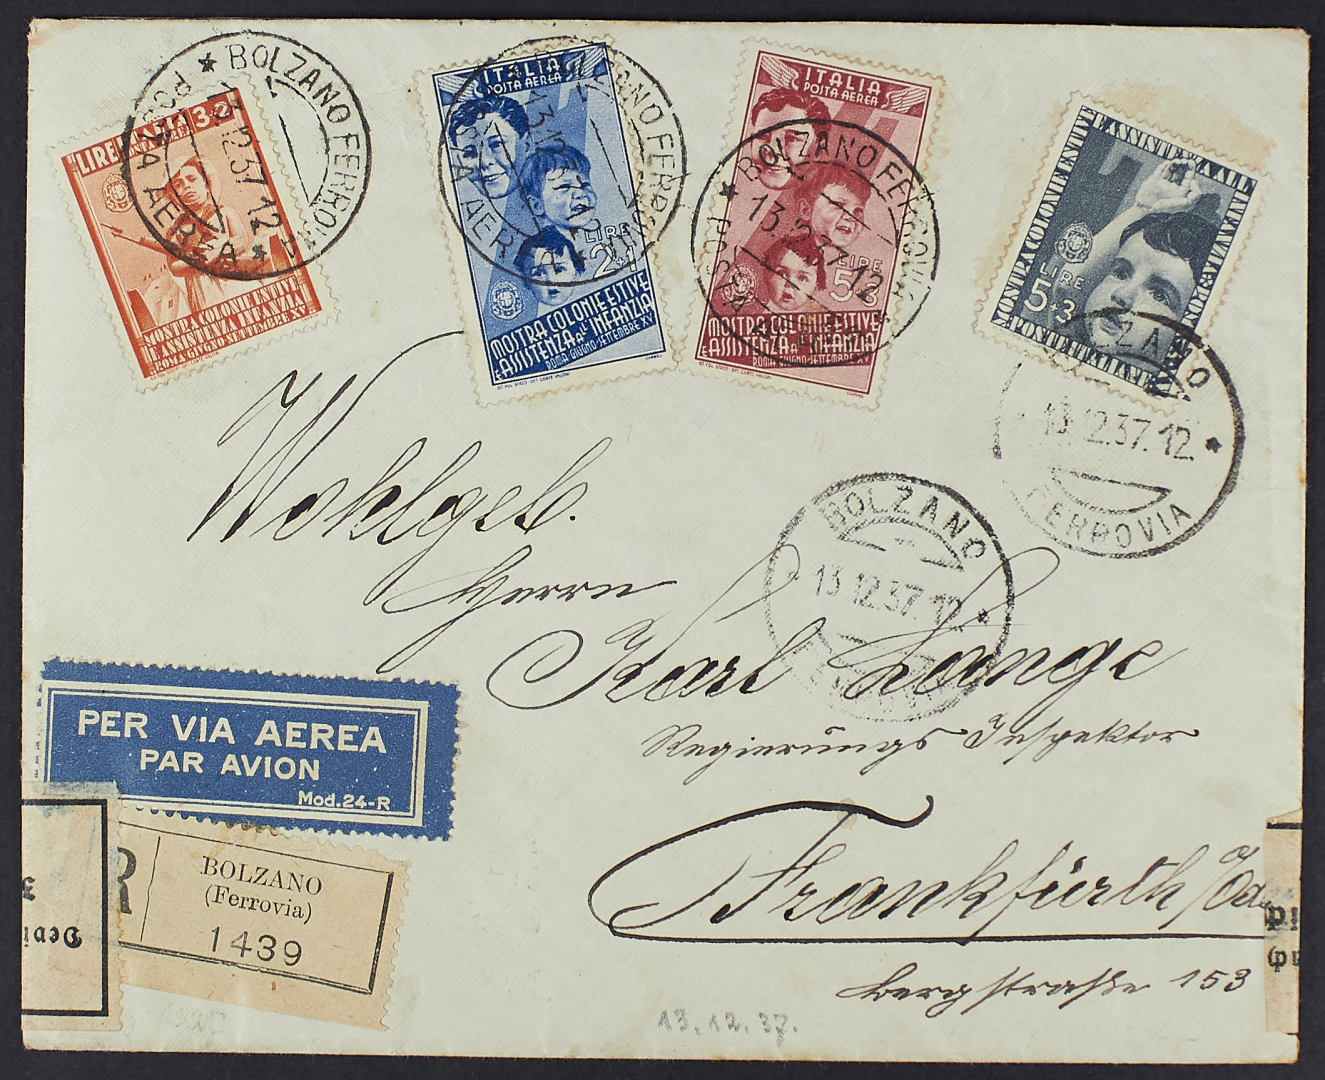 BOLZANO FERROVIA
POSTA AEREA
13.12.37.12
LIRE 3+2
MOSTRA COLONIE ESTIVE
E ASSISTENZA INFANZIA
ROMA GIUGNO-SETTEMBRE XV
BOLZANO FERROVIA
13.12.37.12
ITALIA
POSTA AEREA
LIRE
2
MOSTRA COLONIE ESTIVE
E ASSISTENZA ALL'INFANZIA
ROMA·GIUGNO-SETTEMBRE XV
BOLZANO FERROVIA
13.12.37.12
ITALIA
POSTA AEREA
LIRE
5+3
MOSTRA COLONIE ESTIVE
E ASSISTENZA ALL'INFANZIA
ROMA·GIUGNO-SETTEMBRE XV
MOSTRA COLONIE ESTIVE E ASSISTENZA ALL'INFANZIA
LIRE
5+3
POSTE ITALIANE
BOLZANO
13.12.37.12
FERROVIA
BOLZANO
13.12.37.12
Wohlgeb.
Herrn
Karl Lange
Regierungs Inspektor
Frankfurth/Od.
Bergstraße 153
PER VIA AEREA
PAR AVION
Mod.24-R
R
BOLZANO
(Ferrovia)
1439
13.12.37.